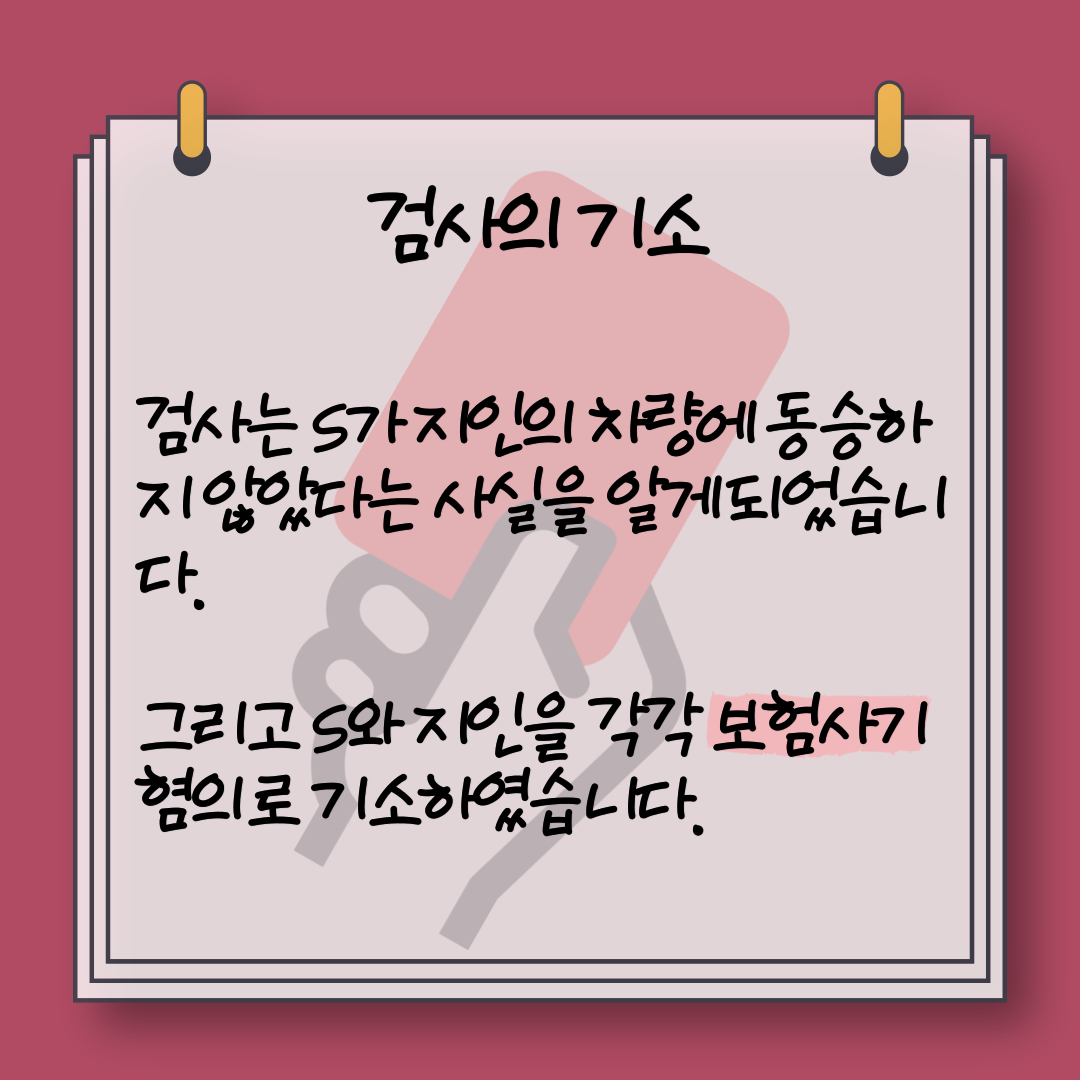 검사의 기소
검사는 S가 지인의 차량에 동승하
지 않았다는 사실을 알게되었습니
다.
그리고 S와 지인을 각각 보험사기
혐의로 기소하였습니다.